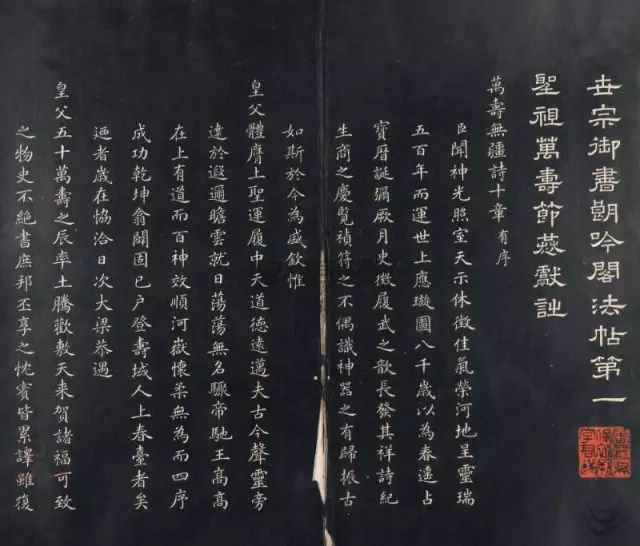 世宗御書朗吟閣法帖第一
聖祖萬壽節恭獻註
萬壽無疆詩十章 有序
臣聞神光照室天示休徵佳氣榮河地呈靈瑞
五百年而運世上應璇圖八千歲以為春遙占
寶曆誕彌厥月史徵履武之歆長發其祥詩紀
生商之慶覽禎符之不偶識神器之有歸振古
如斯於今為盛欽惟
皇父體膺上聖運履中天道德遠邁夫古今聲靈旁
達於遐邇瞻雲就日蕩蕩無名驟帝馳王高高
在上有道而百神效順河嶽懷柔無為而四序
成功乾坤翕闢固已戶登壽域人上春臺者矣
迺者歲在協洽日次大梁恭遇
皇父五十萬壽之辰率土騰歡敷天来賀諸福可致
之物史不絕書庶邦丕享之忱賓皆累譯雖復